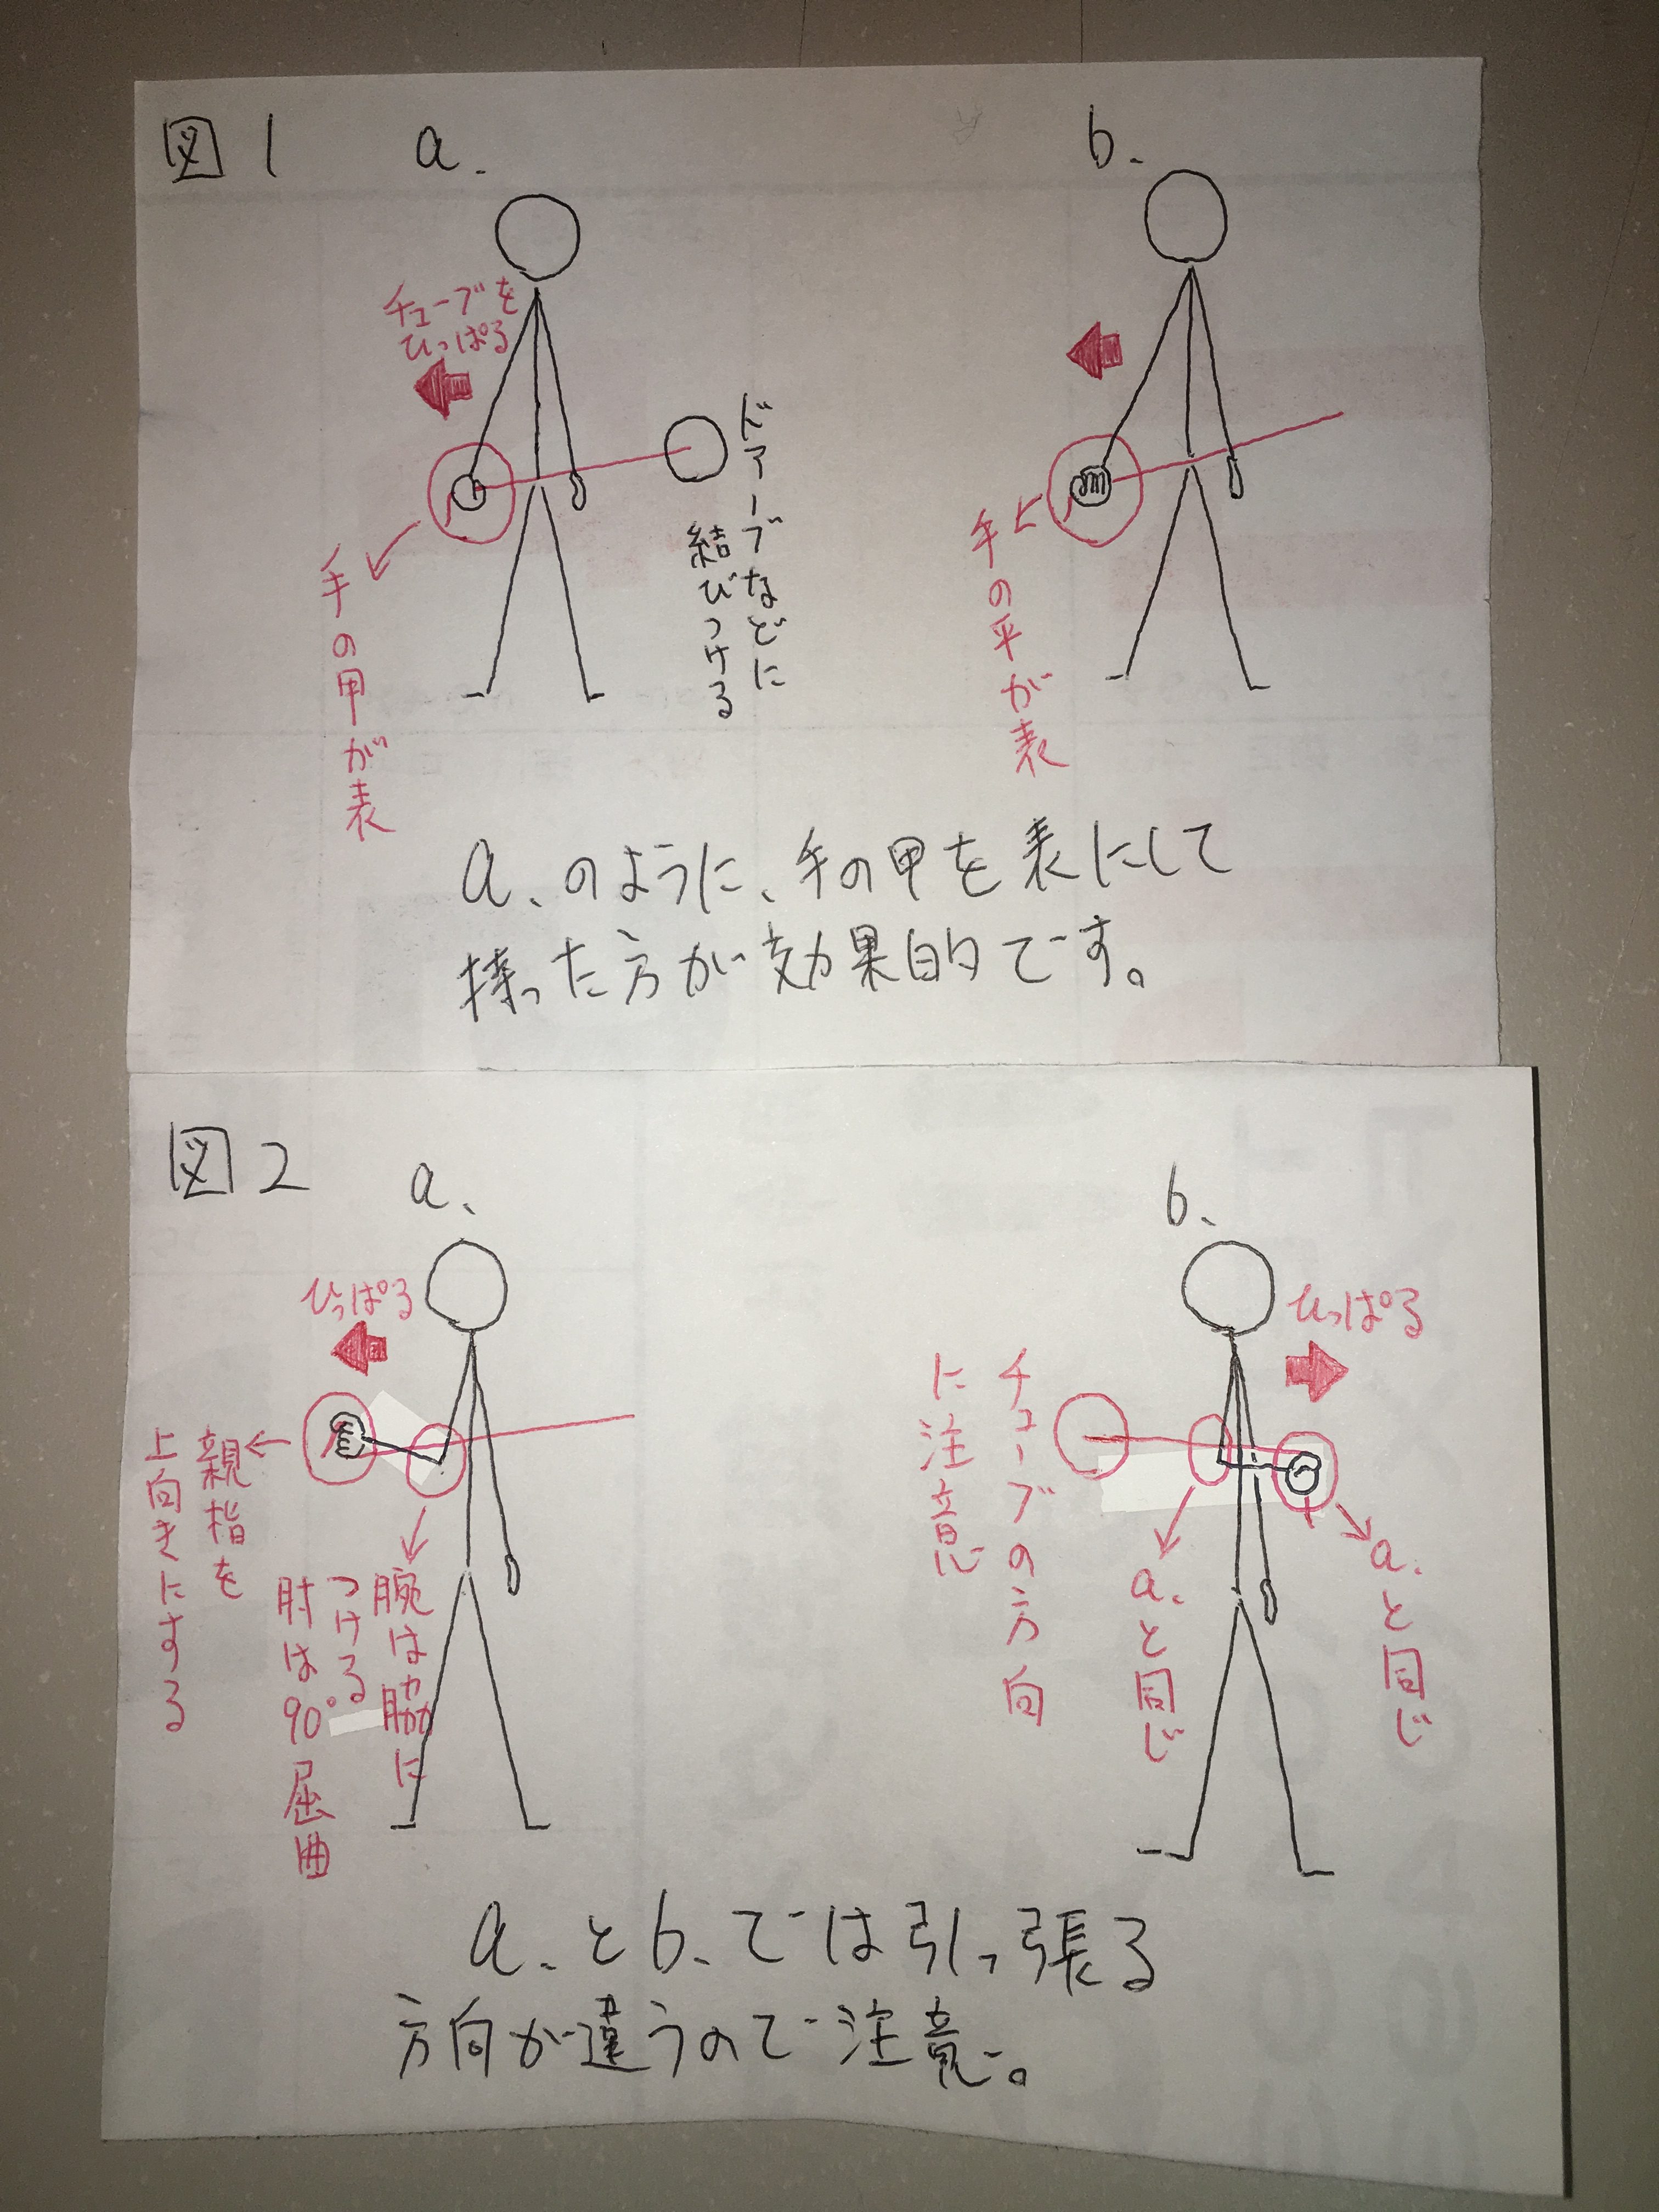 図1
a.
b.
チューブを
ひっぱる
ドアノブなどに
結びつける
手の甲が表
手の平が表
a、のように、手の甲を表にして
持った方が効果的です。
図2
a、
b、
ひっぱる
親指を
上向きにする
腕は脇に
つける
肘は90°屈曲
ひっぱる
チューブの方向
に注意
a、と同じ
a、と同じ
a、とb、では引っ張る
方向が違うので注意。